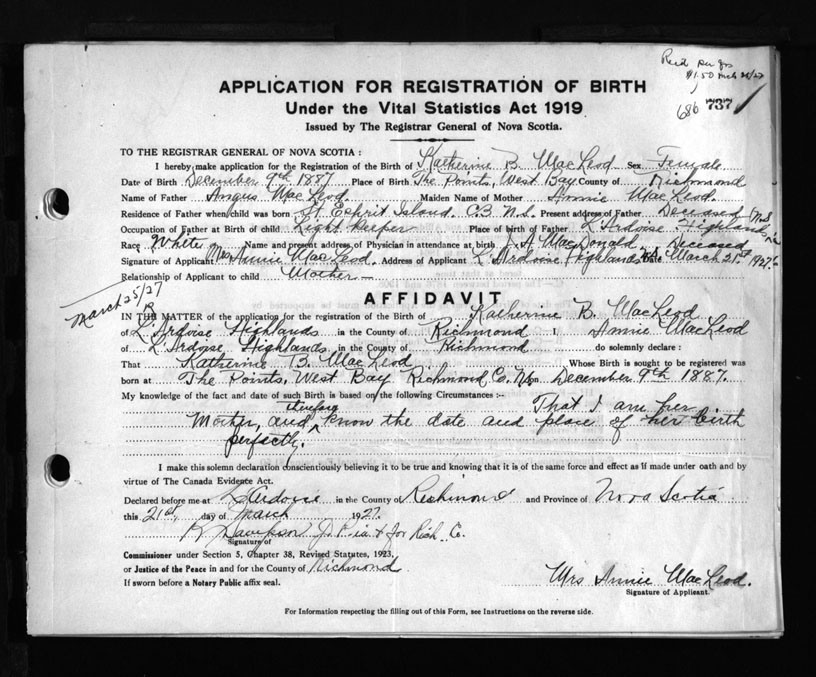 Recd per
$1.50 Mch 28/27
686 737
APPLICATION FOR REGISTRATION OF BIRTH
Under the Vital Statistics Act 1919
Issued by The Registrar General of Nova Scotia.
TO THE REGISTRAR GENERAL OF NOVA SCOTIA :
I hereby make application for the Registration of the Birth of Katherine B. MacLeod Sex Female
Date of Birth December 9th 1887 Place of Birth The Points, West Bay County of Richmond
Name of Father Angus MacLeod Maiden Name of Mother Annie MacLeod.
Residence of Father when child was born St. Esprit Island. C.B N.S. Present address of Father Deceased
Occupation of Father at Birth of child Light keeper Place of birth of Father L'Ardoise Highlands N.S
Race White Name and present address of Physician in attendance at birth J. A MacDonald, Deceased
Signature of Applicant Mrs Annie MacLeod. Address of Applicant L'Ardoise Highlands Date March 21st 1927.
Relationship of Applicant to child Mother
March 25/27
AFFIDAVIT
IN THE MATTER of the application for the registration of the Birth of Katherine B. MacLeod
of L'Ardoise Highlands in the County of Richmond I, Annie MacLeod
of L'Ardoise Highlands in the County of Richmond do solemnly declare :
That Katherine B. MacLeod Whose Birth is sought to be registered was
born at The Points, West Bay Richmond Co. N.S on December 9th 1887.
My knowledge of the fact and date of such Birth is based on the following Circumstances :-
That I am her
Mother, and therefore know the date and place of her birth
perfectly.
I make this solemn declaration conscientiously believing it to be true and knowing that it is of the same force and effect as if made under oath and by
virtue of The Canada Evidence Act.
Declared before me at L'Ardoise in the County of Richmond and Province of Nova Scotia
this 21st, day of March 1927.
J. P. in & for Rich. Co.
Signature of
Commissioner under Section 5, Chapter 38, Revised Statutes, 1923.
or Justice of the Peace in and for the County of Richmond
If sworn before a Notary Public affix seal.
Mrs Annie MacLeod.
Signature of Applicant.
For Information respecting the filling out of this Form, see Instructions on the reverse side.